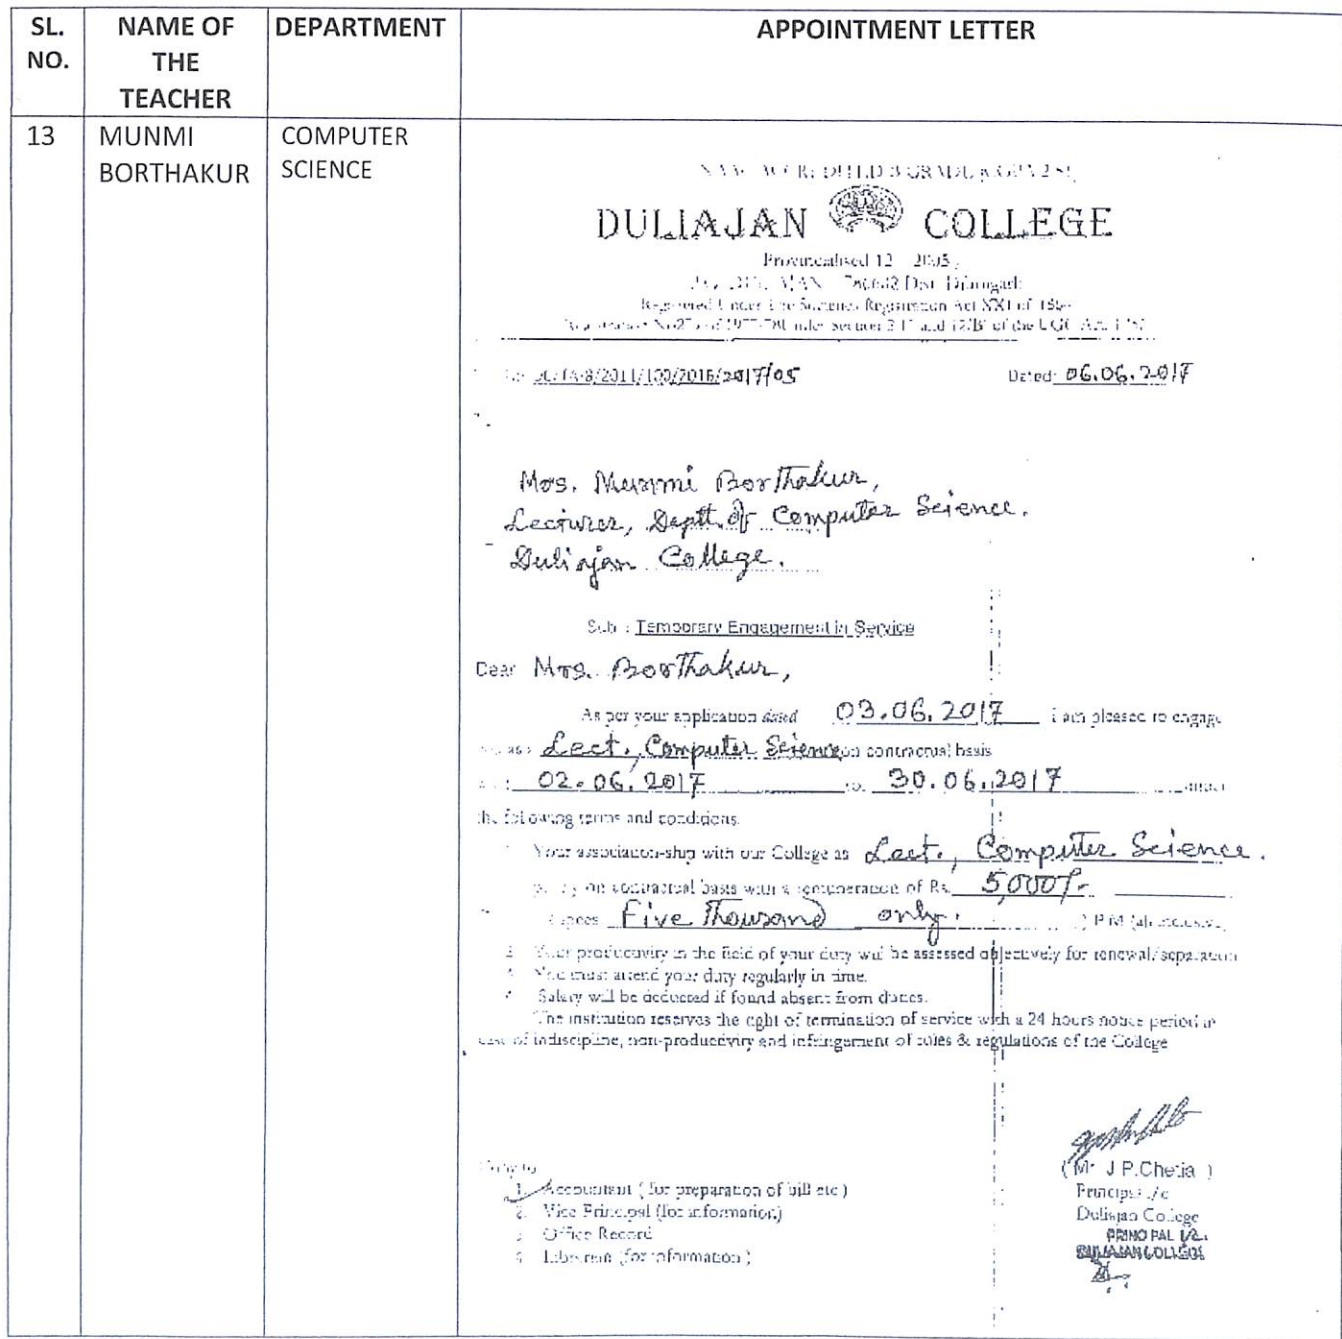 SL. NO.
NAME OF THE TEACHER
DEPARTMENT
APPOINTMENT LETTER
13
MUNMI BORTHAKUR
COMPUTER SCIENCE
DULIAJAN COLLEGE
Provincialised 12 2005
Dist Dibrugarh
Registered Under The Societies Registration Act XXI of
under section 2 and 12/B of the UGC Act
/2011/100/2016/2017/05
Dated: 06.06.2017
Mrs. Munmi Borthakur,
Lecturer, Deptt. of Computer Science.
Duliajan College.
Sub : Temporary Engagement in Service
Dear Mrs. Borthakur,
As per your application dated 03.06.2017 I am pleased to engage
as Lect., Computer Science on contractual basis
02.06.2017 to 30.06.2017
the following terms and conditions.
Your association-ship with our College as Lect., Computer Science.
on contractual basis with a remuneration of Rs. 5,000/-
Five Thousand only. ) P.M
Your productivity in the field of your duty will be assessed objectively for renewal/separation
You must attend your duty regularly in time.
Salary will be deducted if found absent from duties.
The institution reserves the right of termination of service with a 24 hours notice period in
case of indiscipline, non-productivity and infringement of rules & regulations of the College
Copy to
1. Accountant ( for preparation of bill etc )
2. Vice Principal (for information)
3. Office Record
4. Librarian (for information )
( Mr. J P.Chetia )
Principal i/c
Duliajan College
PRINCIPAL I/C.
DULIAJAN COLLEGE